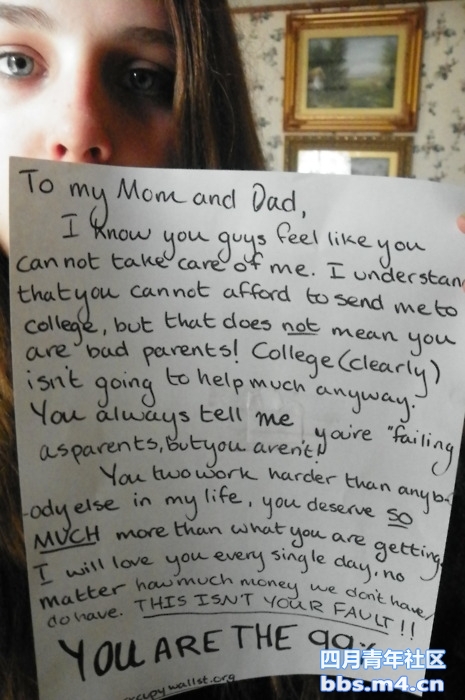 To my Mom and Dad,
I know you guys feel like you
cannot take care of me. I understan
that you cannot afford to send me to
college, but that does not mean you
are bad parents! College (clearly)
isn't going to help much anyway.
You always tell me you're "failing
as parents, but you aren't!
You two work harder than anyb-
-ody else in my life, you deserve so
MUCH more than what you are getting.
I will love you every single day, no
matter how much money we don't have/
do have. THIS ISN'T YOUR FAULT!!
YOU ARE THE 99
occupywallst.org
四月青年社区
bbs.m4.cn